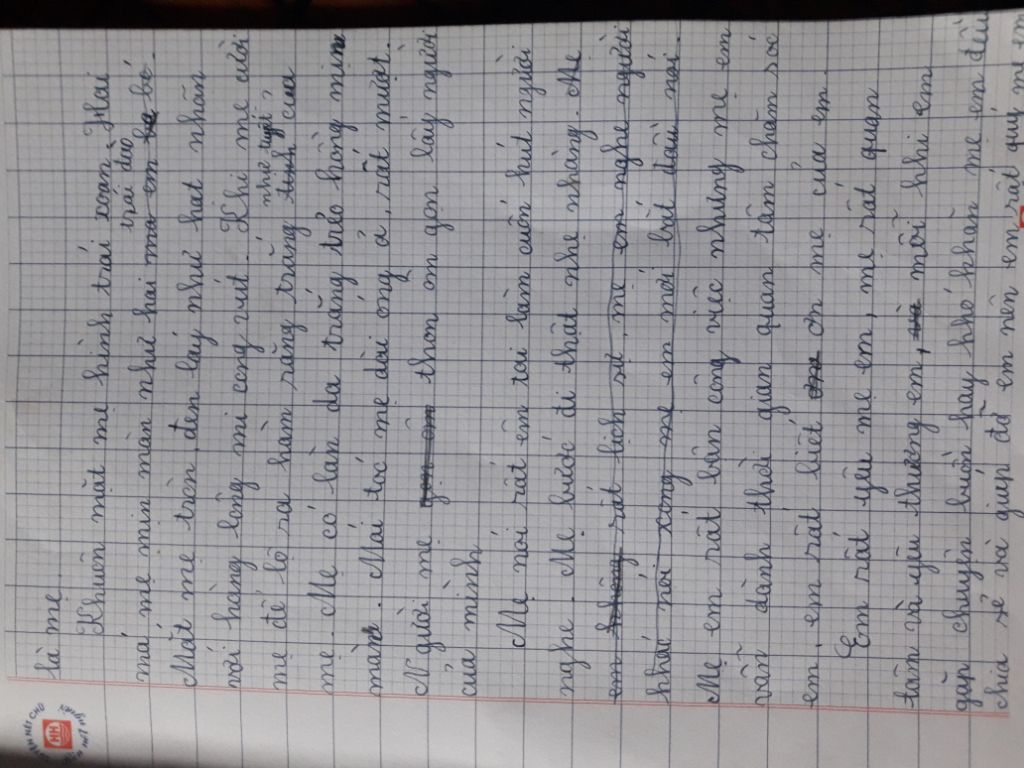 là mẹ.
Khuôn mặt mẹ hình trái xoan, Hai
trái đào
má mẹ mịn màn như hai má em bé.
Mắt mẹ tròn, đen láy như hạt nhãn
với hàng lông mi cong vút. Khi mẹ cười
như tuyết
mẹ để lộ ra hàm răng trắng tinh của
mẹ. Mẹ có làn da trắng trẻo hồng mịn
màn. Mái tóc mẹ dài óng ả, rất mượt.
Người mẹ thon on gọn lấy người
của mình.
Mẹ nói rất êm tai làm cuốn hút người
nghe. Mẹ bước đi thật nhẹ nhàng. Mẹ
em không rất lịch sự, mẹ em nghe người
khác nói xong mẹ em mới bắt đầu nói.
Mẹ em rất bận công việc nhưng mẹ em
vẫn dành thời gian quan tâm chăm sóc
em, em rất biết ơn mẹ của em.
Em rất yêu mẹ em, mẹ rất quan
tâm và yêu thương em, mỗi khi em
gặp chuyện buồn hay khó khăn mẹ em đều
chia sẻ và giúp đỡ em nên em rất quý mẹ em